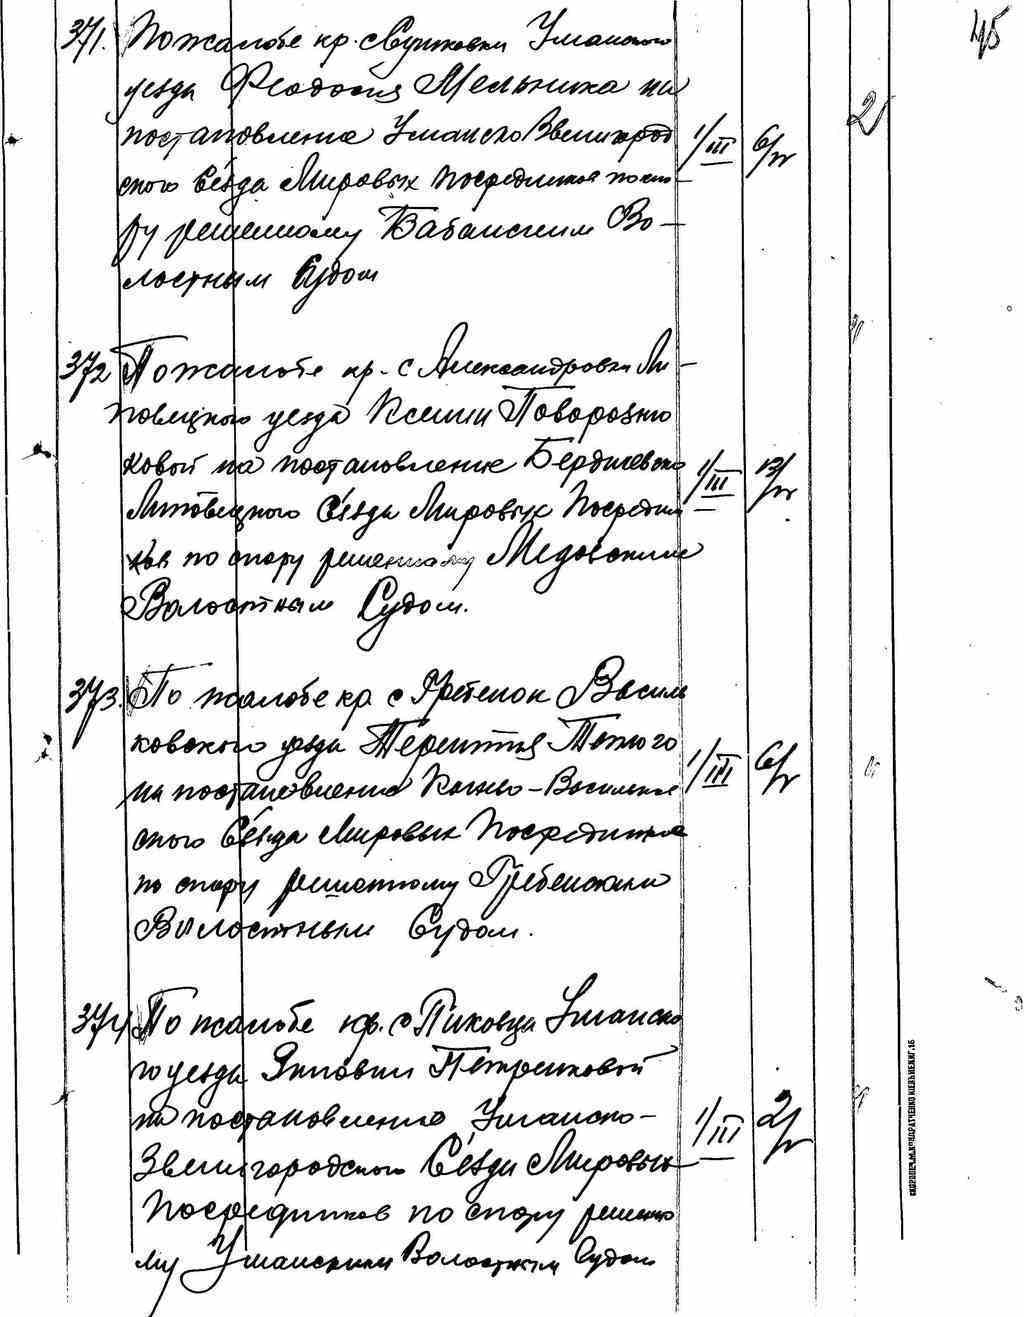 45
2
371. По жалобе кр. с Сушковки Уманского
уезда Феодосия Мельника на
постановление Уманско Звенигород
ского Съезда Мировых Посредников по спо-
ру решенному Бабанским Во-
лостным Судом
1/III 6/IV
372 По жалобе кр. с Александровки Ли-
повецкого уезда Ксении Поворозню
ковой на постановление Бердичевско
Липовецкого Съезда Мировых Посредни
ков по спору решенному Медовским
Волостным Судом.
1/III 12/IV
373. По жалобе кр с Гребенок Василь
ковского уезда Терентия
на постановление Киево-Васильков
ского Съезда Мировых Посредников
по спору решенному Гребенским
Волостным Судом.
1/III 6/V
374 По жалобе кр. с Пиковца Уманско
го уезда Петренковой
на постановление Уманско-
Звенигородского Съезда Мировых
Посредников по спору решенно
му Уманским Волостным Судом
1/III 2/V